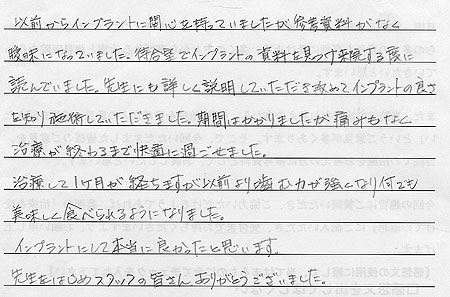 以前からインプラントに関心を持っていましたが参考資料がなく
曖昧になっていました。待合室でインプラントの資料を見つけ来院する度に
読んでいました。先生にも詳しく説明していただき改めてインプラントの良さ
を知り施術していただきました。期間はかかりましたが痛みもなく
治療が終わるまで快適に過ごせました。
治療して1ヶ月が経ちますが以前より噛む力が強くなり何でも
美味しく食べられるようになりました。
インプラントにして本当に良かったと思います。
先生をはじめスタッフの皆さんありがとうございました。